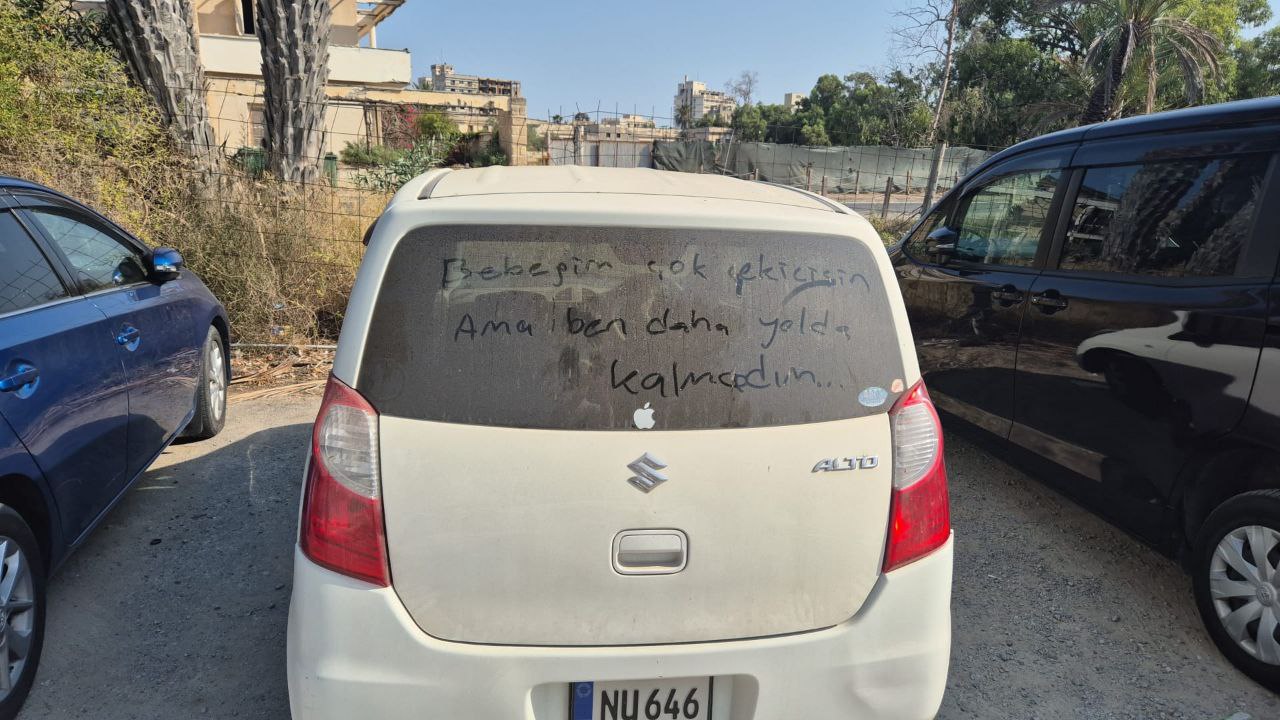 Bebeğim çok çekicisin
Ama ben daha yolda
kalmadım...
ALTO
NU 646